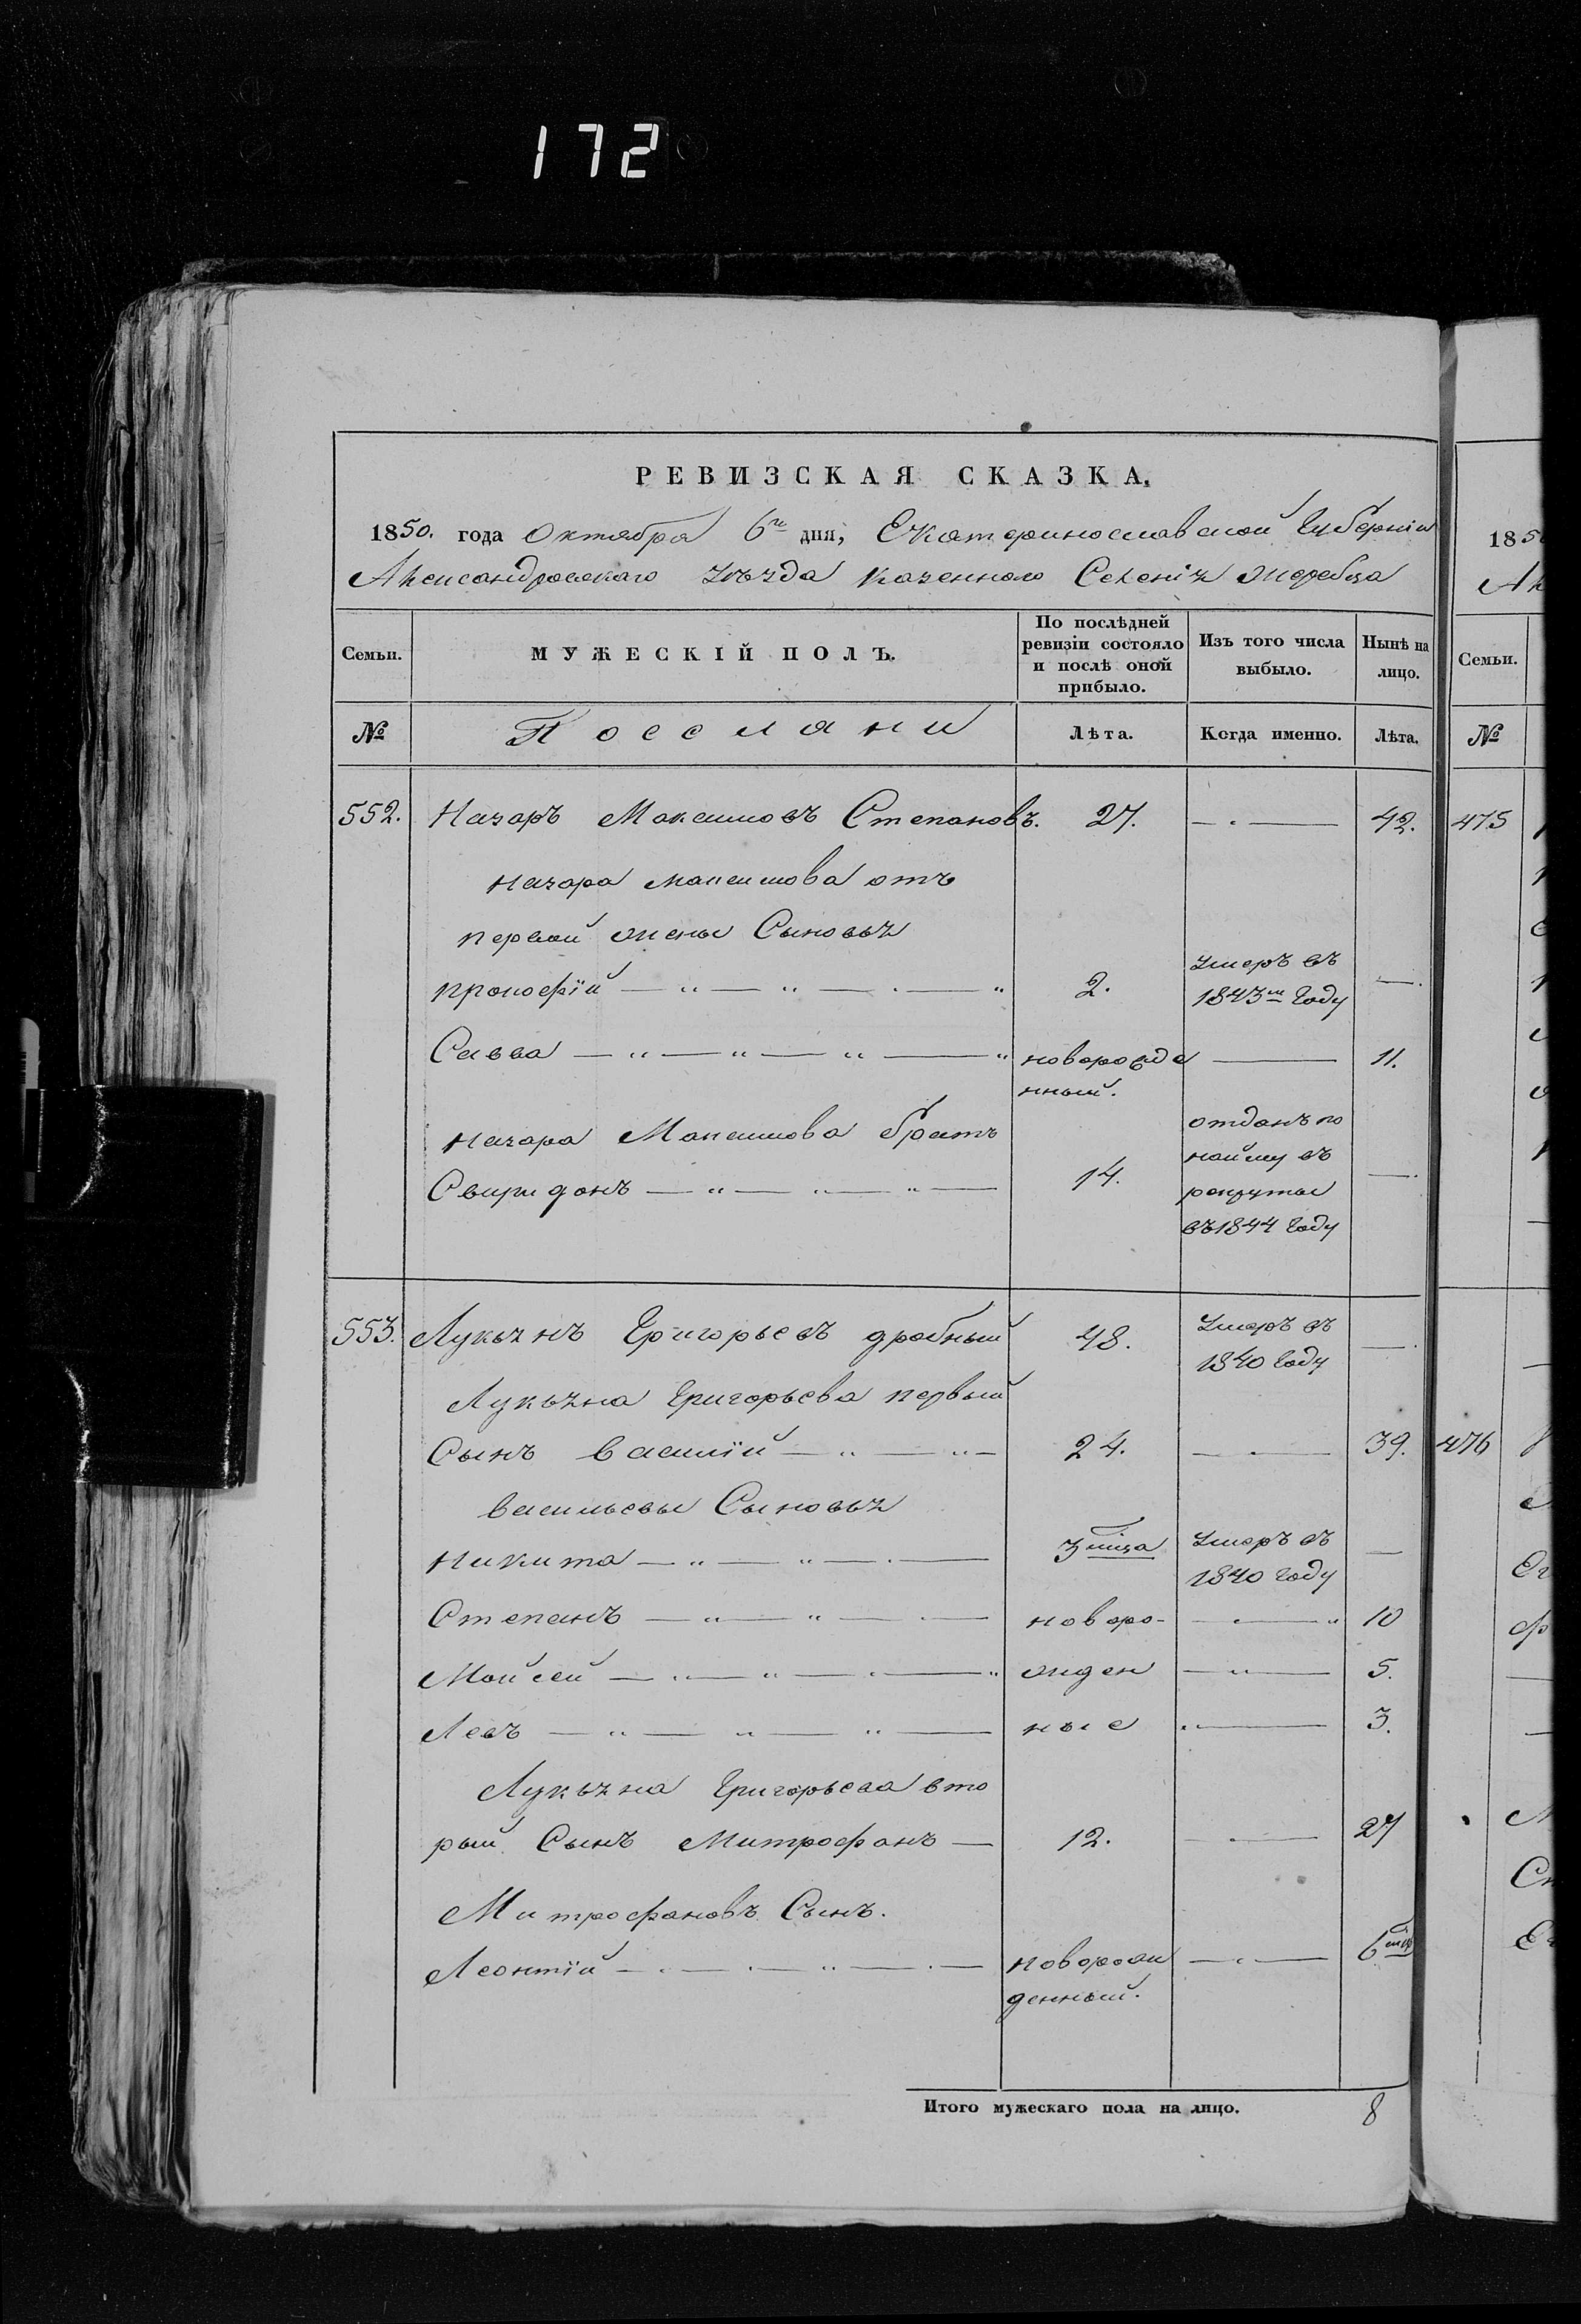 172
РЕВИЗСКАЯ СКАЗКА.
1850. года Октября 6го дня, Екатеринославской Губерніи
Александровскаго уѣзда казенного Селенія Жеребца
Семьи.
МУЖЕСКІЙ ПОЛЪ.
По послѣдней ревизіи состояло и послѣ оной прибыло.
Изъ того числа выбыло.
Нынѣ на лицо.
№
Поселяни
Лѣта.
Когда именно.
Лѣта.
552. Назаръ Максимовъ Степановъ. 27. — 42.
Назара Максимова отъ
первой жены Сыновья
Прокофій — " — " — " 2. умеръ въ 1843м Году —
Савва — " — " — " — " новорожде нный. — 11.
Назара Максимова братъ
Свиридонъ — " — " — " — 14. отданъ по найму въ рекруты въ 1844 Году —
553. Лукьянъ Григорьевъ дробный 48. умеръ въ 1840 Году —
Лукьяна Григорьева первый
Сынъ Василій — " — " — 24. — 39.
Васильевы Сыновья
Никита — " — " — 3 мѣца умеръ въ 1840 Году —
Степанъ — " — " — новоро- — " 10
Мойсей — " — " — " жден — " — 5.
Левъ — " — " — " — ные " — 3.
Лукьяна Григорьева вто
рый Сынъ Митрофанъ — 12. — 27
Митрофановъ Сынъ.
Леонтій — " — новорож денный. — 6 мѣц
Итого мужескаго пола на лицо. 8
185
Ал
Семьи.
№
475
476